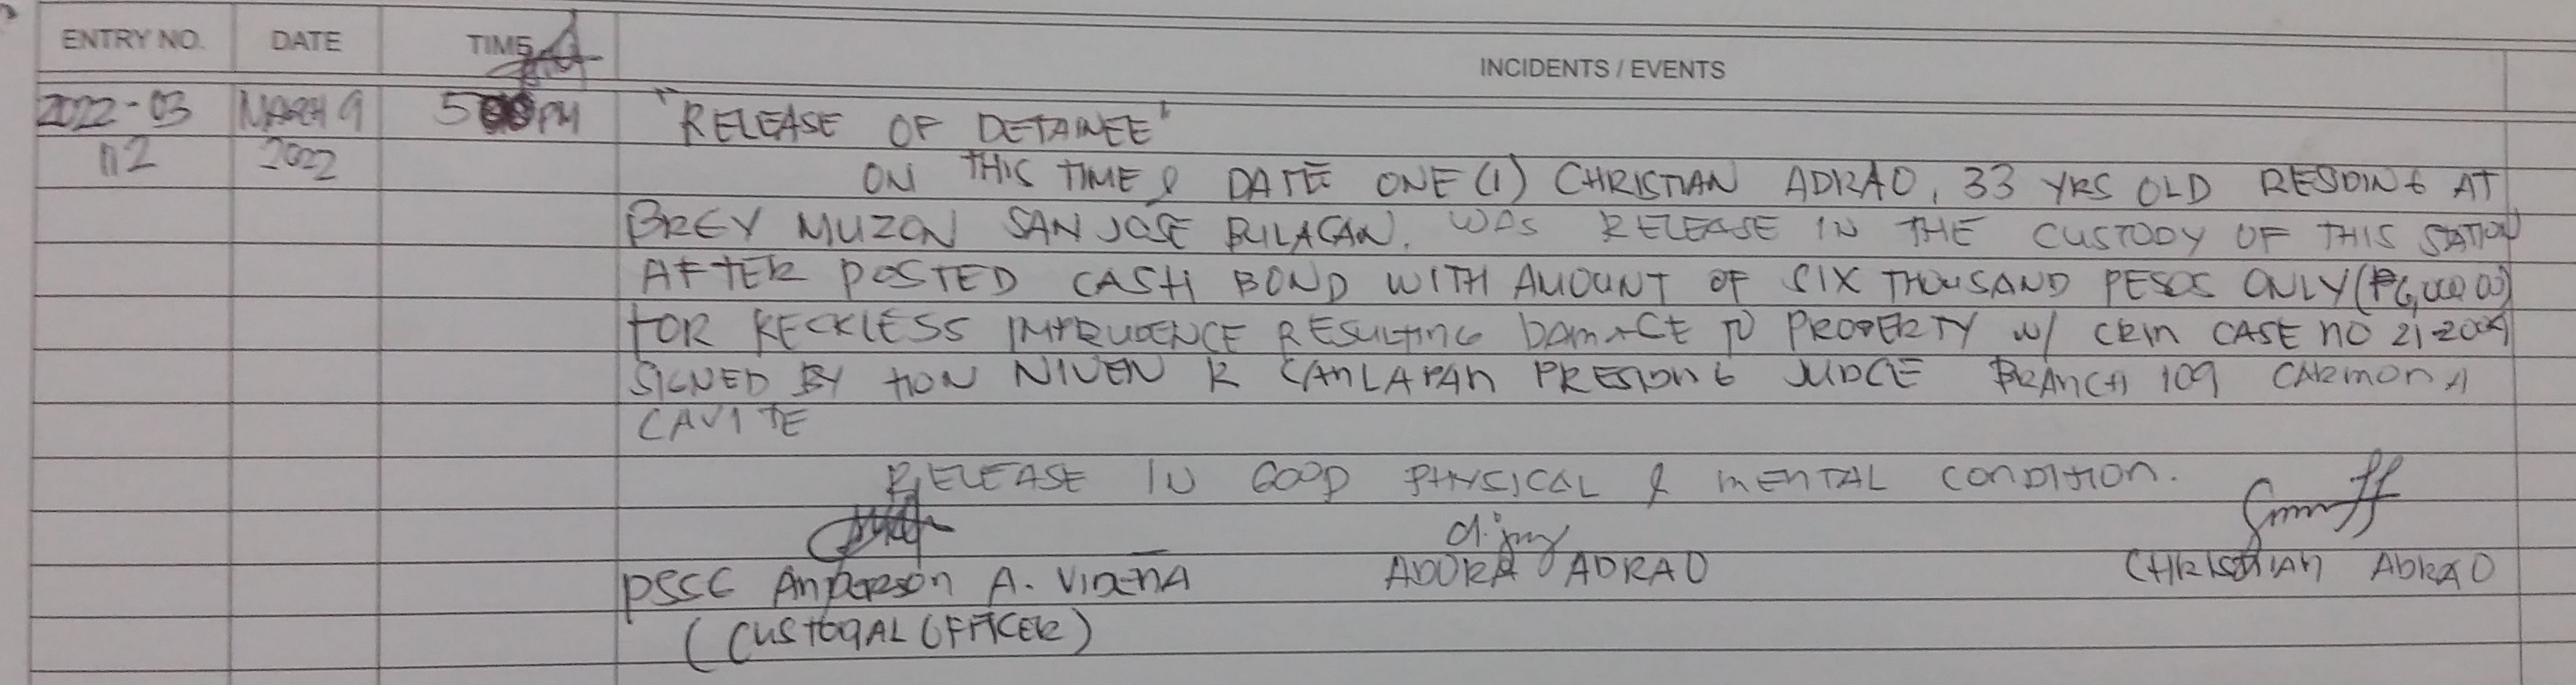 ENTRY NO. DATE TIME INCIDENTS / EVENTS
2022-03 MARCH 9 5 PM "RELEASE OF DETAINEE"
112 2022 ON THIS TIME & DATE ONE (1) CHRISTIAN ADRAO, 33 YRS OLD RESDING AT
BRGY MUZON SAN JOSE BULACAN, WAS RELEASE IN THE CUSTODY OF THIS STATION
AFTER POSTED CASH BOND WITH AMOUNT OF SIX THOUSAND PESOS ONLY (₱6,000.00)
FOR RECKLESS IMPRUDENCE RESULTING DAMAGE TO PROPERTY W/ CRIM CASE NO 21-2009
SIGNED BY HON NIVEN R CANLAPAN PRESIDING JUDGE BRANCH 109 CARMONA
CAVITE
RELEASE IN GOOD PHYSICAL & MENTAL CONDITION.
PSSG Anderson A. ADORA ADRAO CHRISTIAN ADRAO
(CUSTODAL OFFICER)